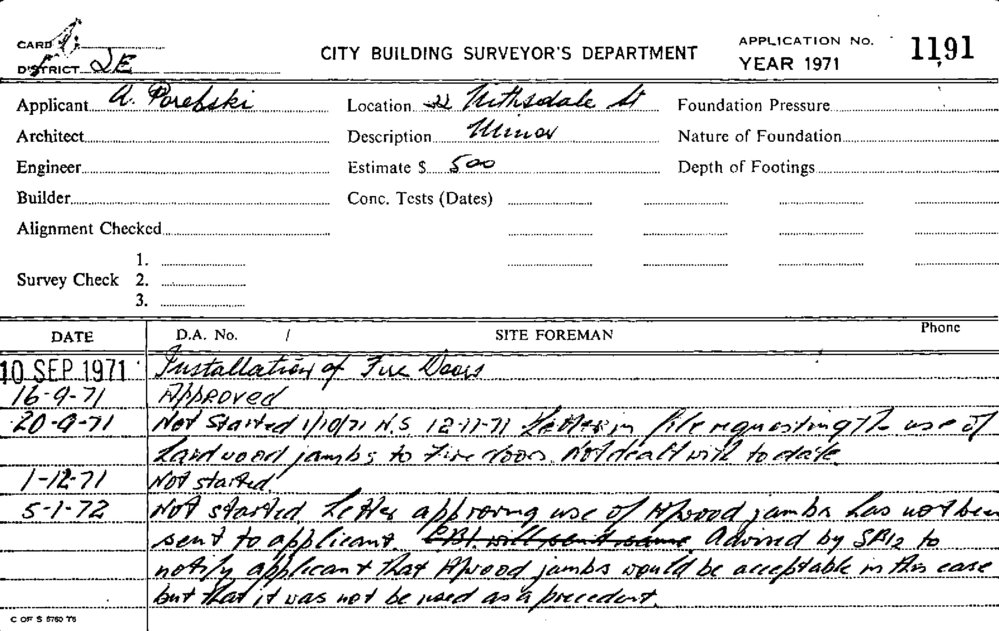 CARD
CITY BUILDING SURVEYOR'S DEPARTMENT
APPLICATION No. 1191
DISTRICT 2E
YEAR 1971
Applicant A. Porebski Location 22 Nithsdale St Foundation Pressure
Architect Description Minor Nature of Foundation
Engineer Estimate $ 500 Depth of Footings
Builder Conc. Tests (Dates)
Alignment Checked
1.
Survey Check 2.
3.
DATE D.A. No. / SITE FOREMAN Phone
10 SEP 1971 Installation of Fire Doors
16-9-71 Approved
20-9-71 Not Started 1/10/71 N.S. 12-11-71 Letter in file requesting the use of
hardwood jambs to fire doors. Not dealt with to date.
1-12-71 Not started
5-1-72 Not started Letter approving use of H/wood jambs has not been
sent to applicant. will send same Advised by SB12 to
notify applicant that H/wood jambs would be acceptable in this case
but that it was not be used as a precedent.
C OF S 5760 T6